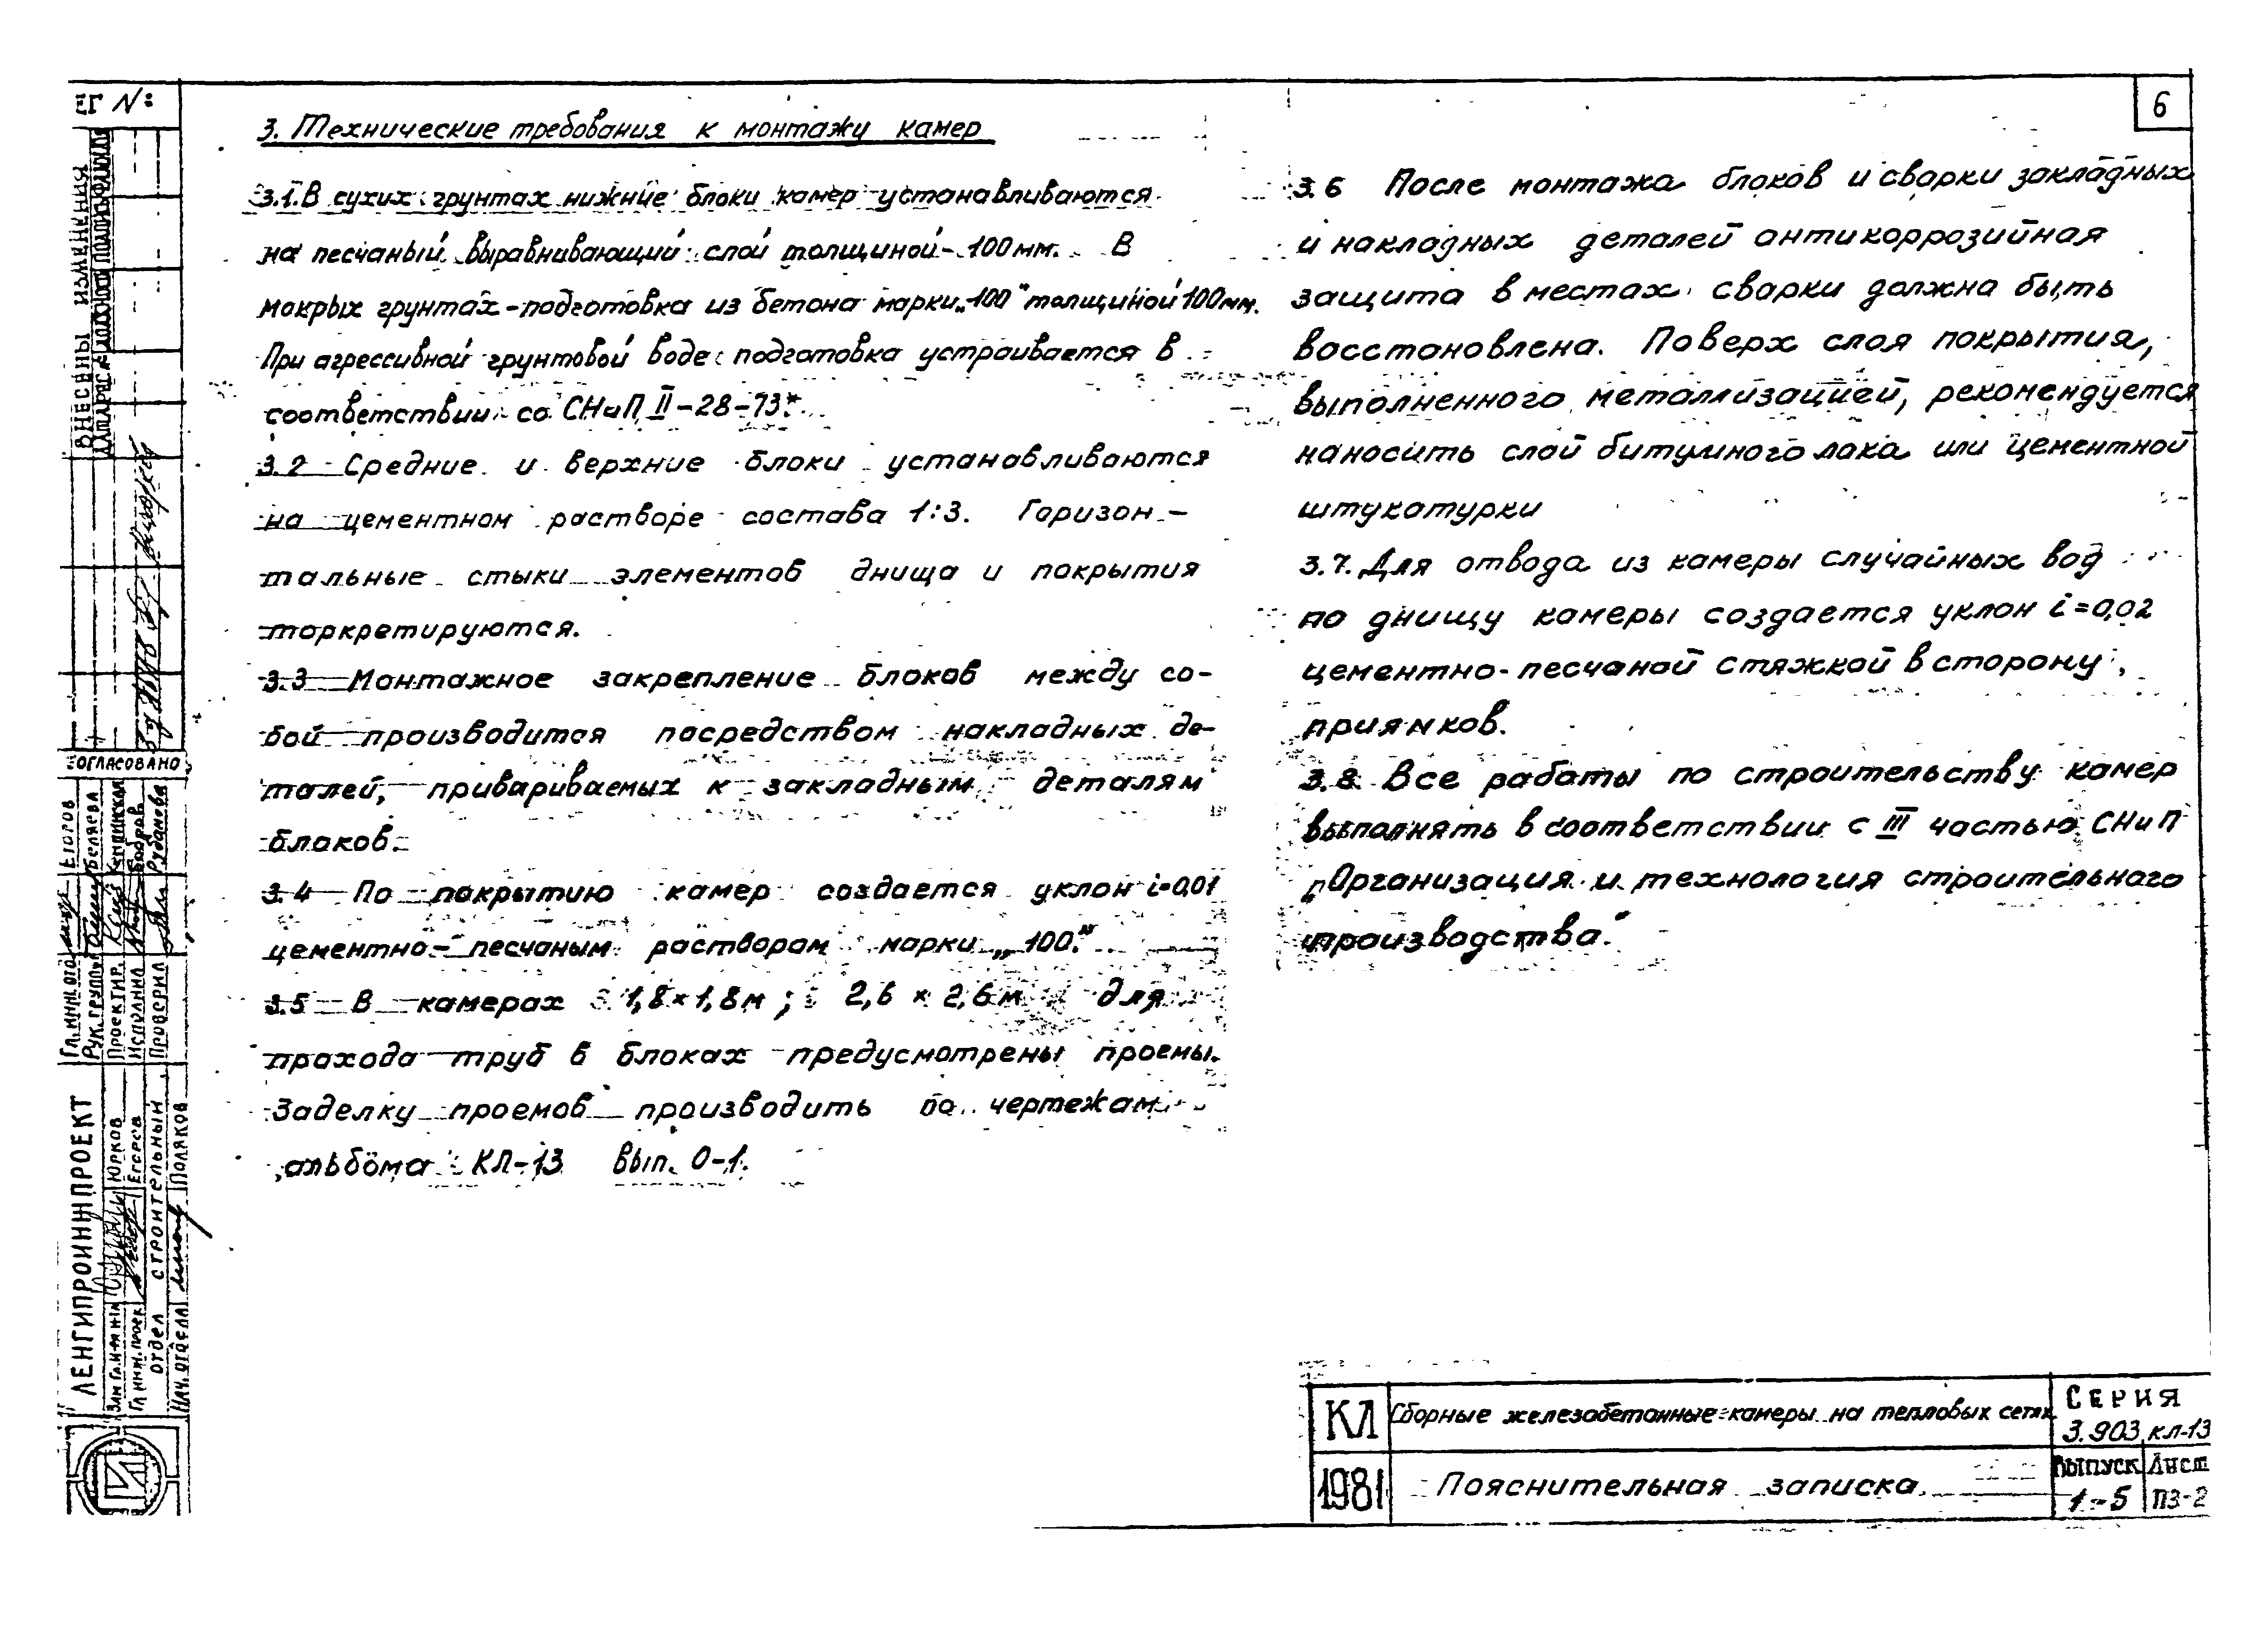 6
3. Технические требования к монтажу камер
3.1. В сухих грунтах нижние блоки камер устанавливаются
на песчаный выравнивающий слой толщиной - 100 мм. В
мокрых грунтах - подготовка из бетона марки „100" толщиной 100 мм.
При агрессивной грунтовой воде подготовка устраивается в
соответствии со СНиП II-28-73*.
3.2 Средние и верхние блоки устанавливаются
на цементном растворе состава 1:3. Горизон-
тальные стыки элементов днища и покрытия
торкретируются.
3.3 Монтажное закрепление блоков между со-
бой производится посредством накладных де-
талей, привариваемых к закладным деталям
блоков.
3.4 По покрытию камер создается уклон i=0,01
цементно-песчаным раствором марки „100."
3.5 В камерах 1,8×1,8м; 2,6×2,6м для
прохода труб в блоках предусмотрены проемы.
Заделку проемов производить по чертежам
альбома КЛ-13 вып. 0-1.
3.6 После монтажа блоков и сварки закладных
и накладных деталей антикоррозийная
защита в местах сварки должна быть
восстановлена. Поверх слоя покрытия,
выполненного металлизацией, рекомендуется
наносить слой битумного лака или цементной
штукатурки
3.7. Для отвода из камеры случайных вод
по днищу камеры создается уклон i=0,02
цементно-песчаной стяжкой в сторону
приямков.
3.8. Все работы по строительству камер
выполнять в соответствии с III частью СНиП
„Организация и технология строительного
производства."
КЛ
1981
Сборные железобетонные камеры на тепловых сетях
Пояснительная записка
Серия
3.903 кл-13
Выпуск Лист
1-5 ПЗ-2
ЕГ №:
ВНЕСЕНЫ ИЗМЕНЕНИЯ
СОГЛАСОВАНО
Гл.инж.отд Егоров
Рук.группы Беляева
Проектир.
Исполнил Бобров
Проверил
ЛЕНГИПРОИНЖПРОЕКТ
Зам гл.инж ин-та Юрков
Гл инж.проек Егоров
отдел строительный
Нач. отдела Поляков